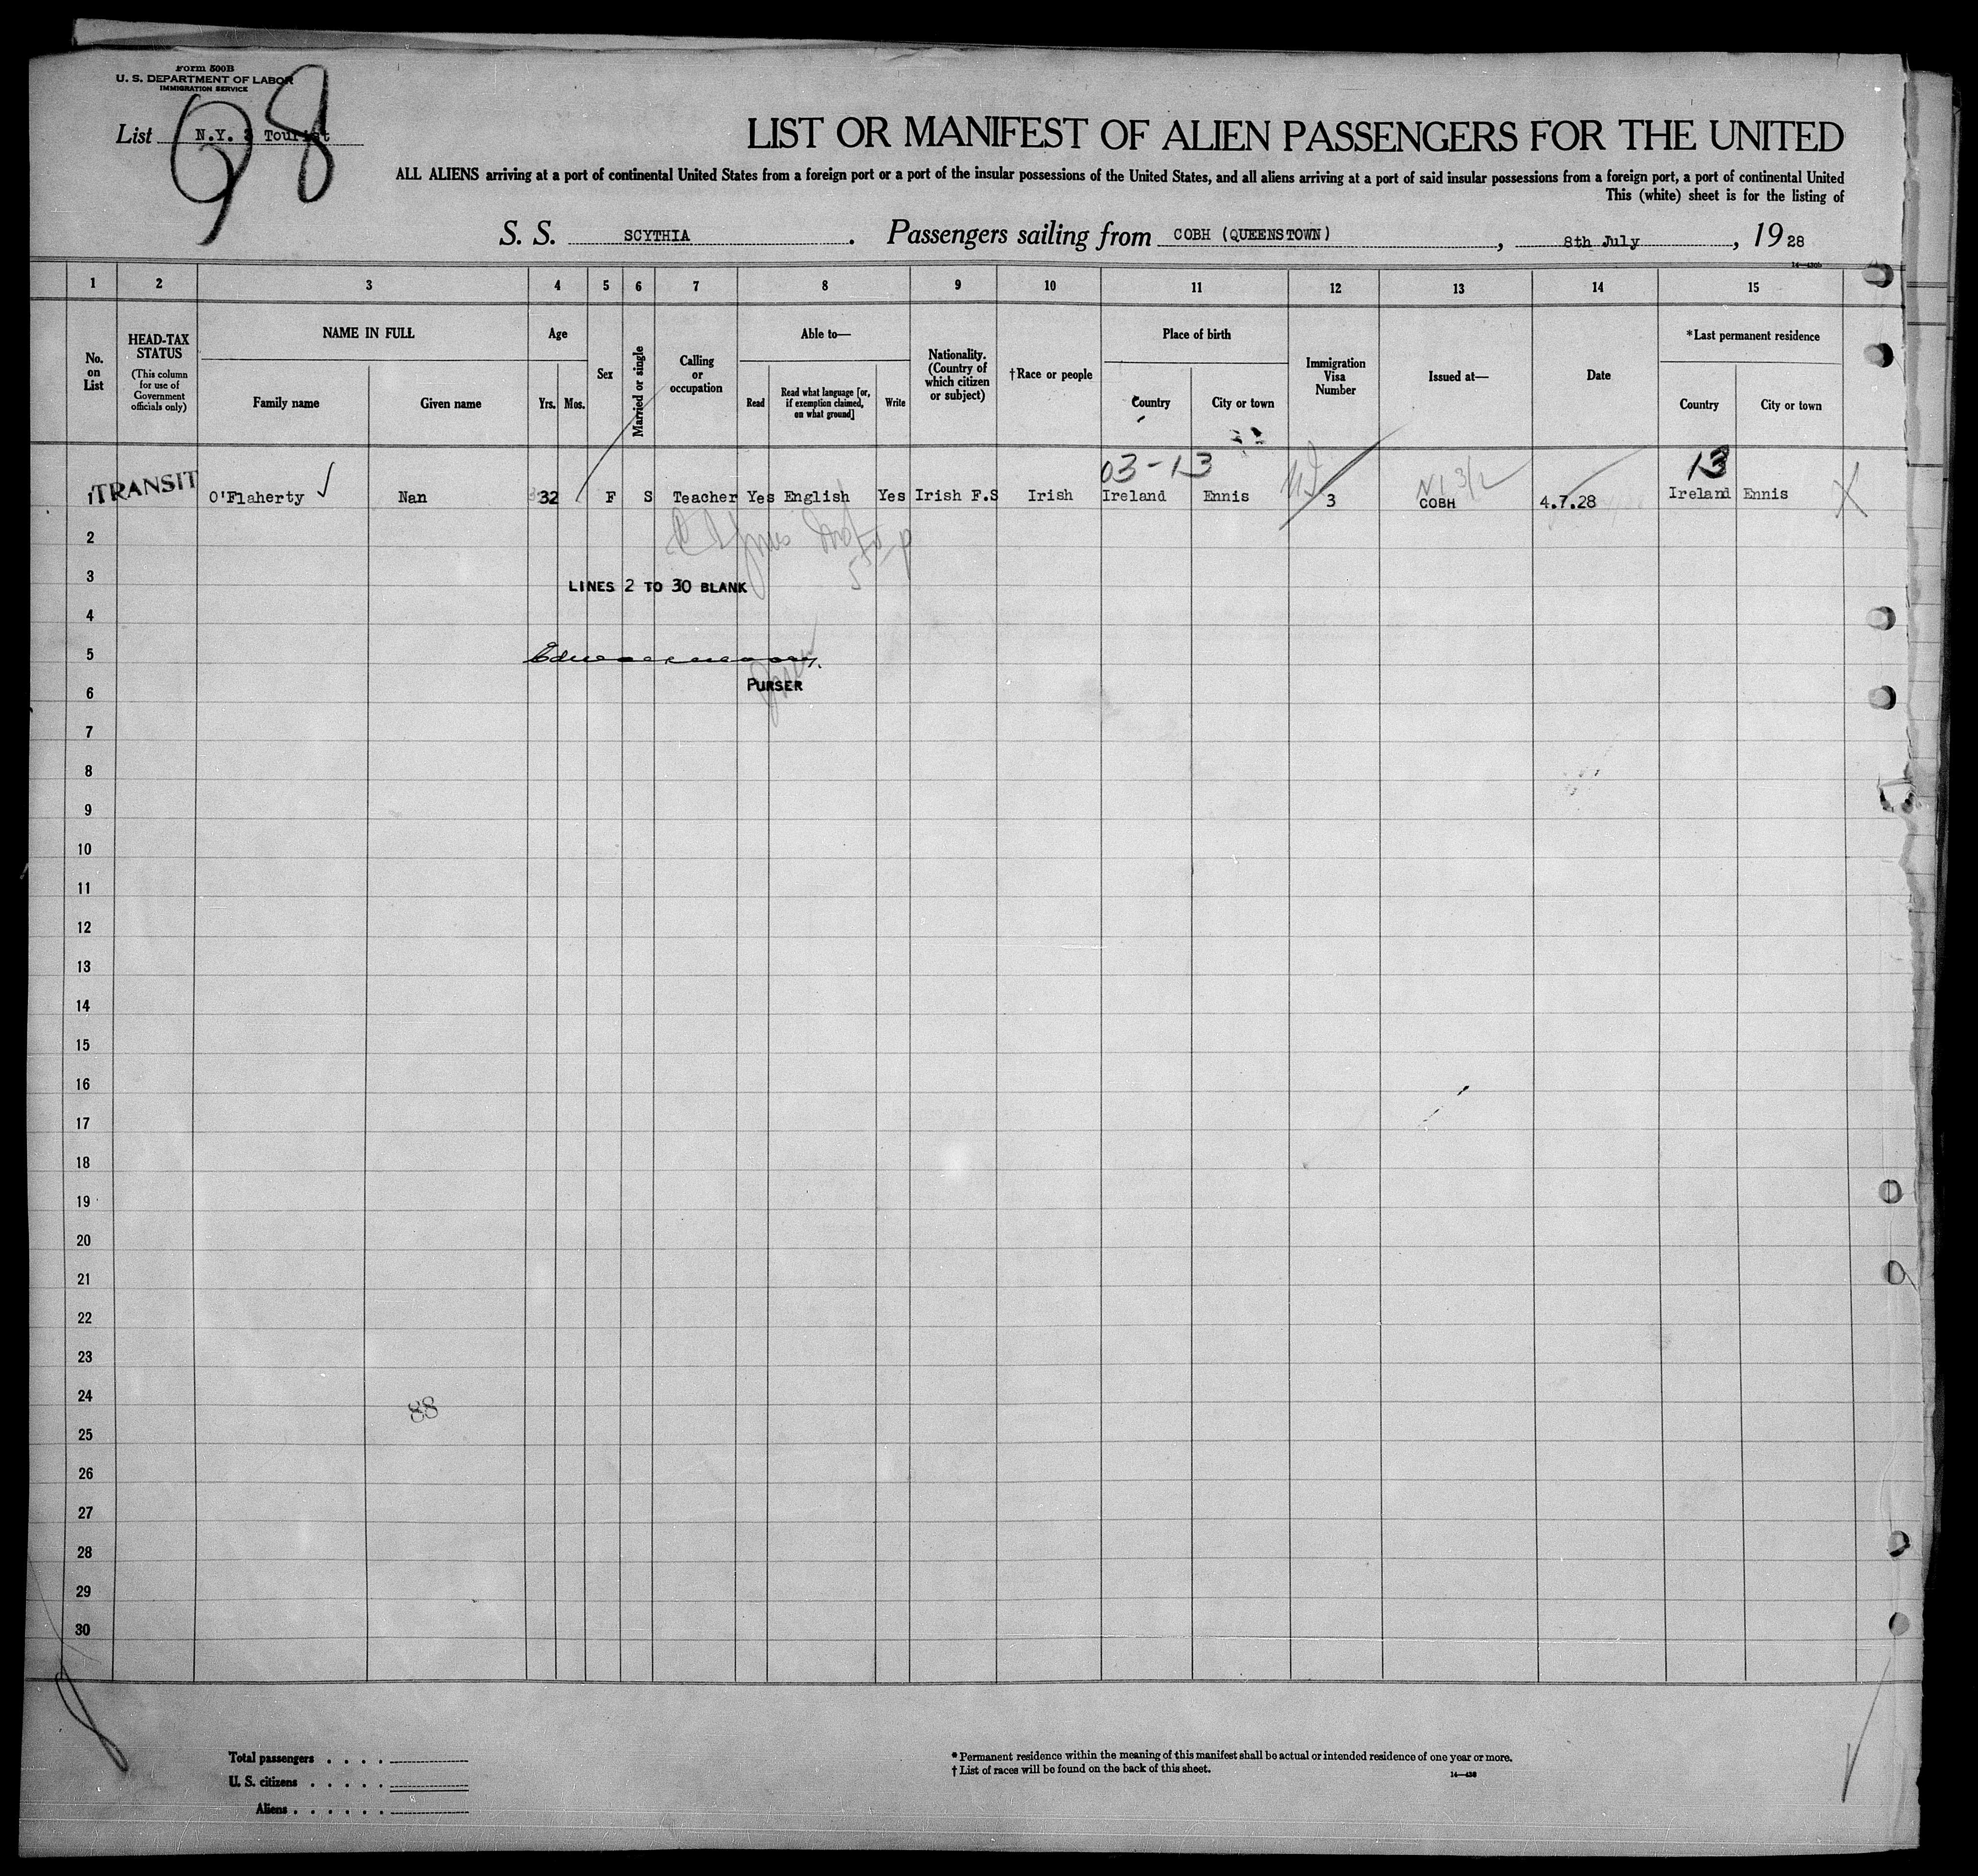 Form 500B
U. S. DEPARTMENT OF LABOR
IMMIGRATION SERVICE
98
List N.Y. 3 Tourist
LIST OR MANIFEST OF ALIEN PASSENGERS FOR THE UNITED
ALL ALIENS arriving at a port of continental United States from a foreign port or a port of the insular possessions of the United States, and all aliens arriving at a port of said insular possessions from a foreign port, a port of continental United
This (white) sheet is for the listing of
S. S. SCYTHIA. Passengers sailing from COBH (QUEENSTOWN), 8th July, 1928
1 2 3 4 5 6 7 8 9 10 11 12 13 14 15
No. on List
HEAD-TAX STATUS
(This column for use of Government officials only)
NAME IN FULL
Family name
Given name
Age
Yrs.
Mos.
Sex
Married or single
Calling or occupation
Able to—
Read
Read what language [or, if exemption claimed, on what ground]
Write
Nationality. (Country of which citizen or subject)
†Race or people
Place of birth
Country
City or town
Immigration Visa Number
Issued at—
Date
*Last permanent residence
Country
City or town
03-13
13
1 TRANSIT O'Flaherty Nan 32 F S Teacher Yes English Yes Irish F.S Irish Ireland Ennis 3 COBH 4.7.28 Ireland Ennis X
2
3
LINES 2 TO 30 BLANK
4
5
PURSER
6
7
8
9
10
11
12
13
14
15
16
17
18
19
20
21
22
23
24
88
25
26
27
28
29
30
Total passengers . . . .
U. S. citizens . . . . .
Aliens . . . . . .
* Permanent residence within the meaning of this manifest shall be actual or intended residence of one year or more.
† List of races will be found on the back of this sheet.